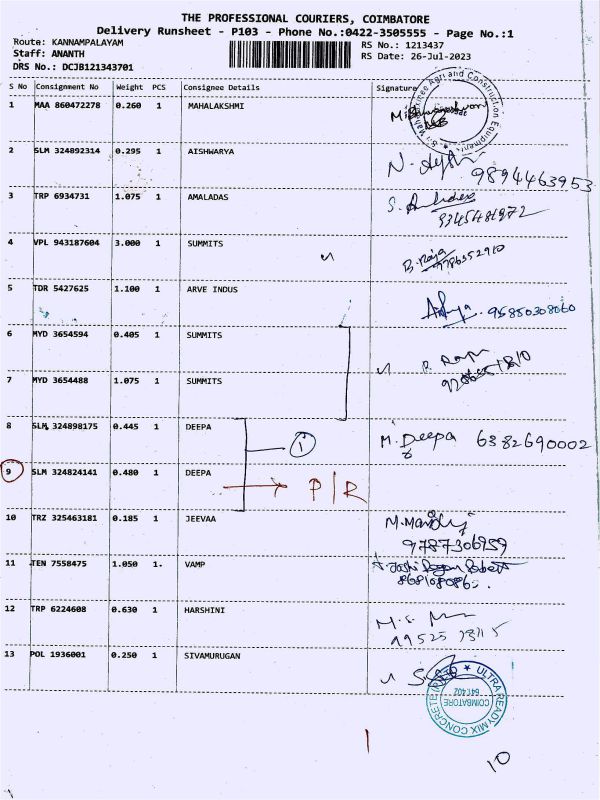 THE PROFESSIONAL COURIERS, COIMBATORE
Delivery Runsheet - P103 - Phone No.:0422-3505555 - Page No.:1
Route: KANNAMPALAYAM
RS No.: 1213437
Staff: ANANTH
RS Date: 26-Jul-2023
DRS No.: DCJB121343701
S No Consignment No Weight PCS Consignee Details Signature
1 MAA 860472278 0.260 1 MAHALAKSHMI
2 SLM 324892314 0.295 1 AISHWARYA
9894463953
3 TRP 6934731 1.075 1 AMALADAS
4 VPL 943187604 3.000 1 SUMMITS B. Raja
5 TDR 5427625 1.100 1 ARVE INDUS
6 MYD 3654594 0.405 1 SUMMITS
7 MYD 3654488 1.075 1 SUMMITS
8 SLM 324898175 0.445 1 DEEPA M. Deepa 6382690002
1
9 SLM 324824141 0.480 1 DEEPA P/R
10 TRZ 325463181 0.185 1 JEEVAA
9787306959
11 TEN 7558475 1.050 1 VAMP
12 TRP 6224608 0.630 1 HARSHINI
13 POL 1936001 0.250 1 SIVAMURUGAN
ULTRA READY MIX CONCRETE
COIMBATORE
641 402
10